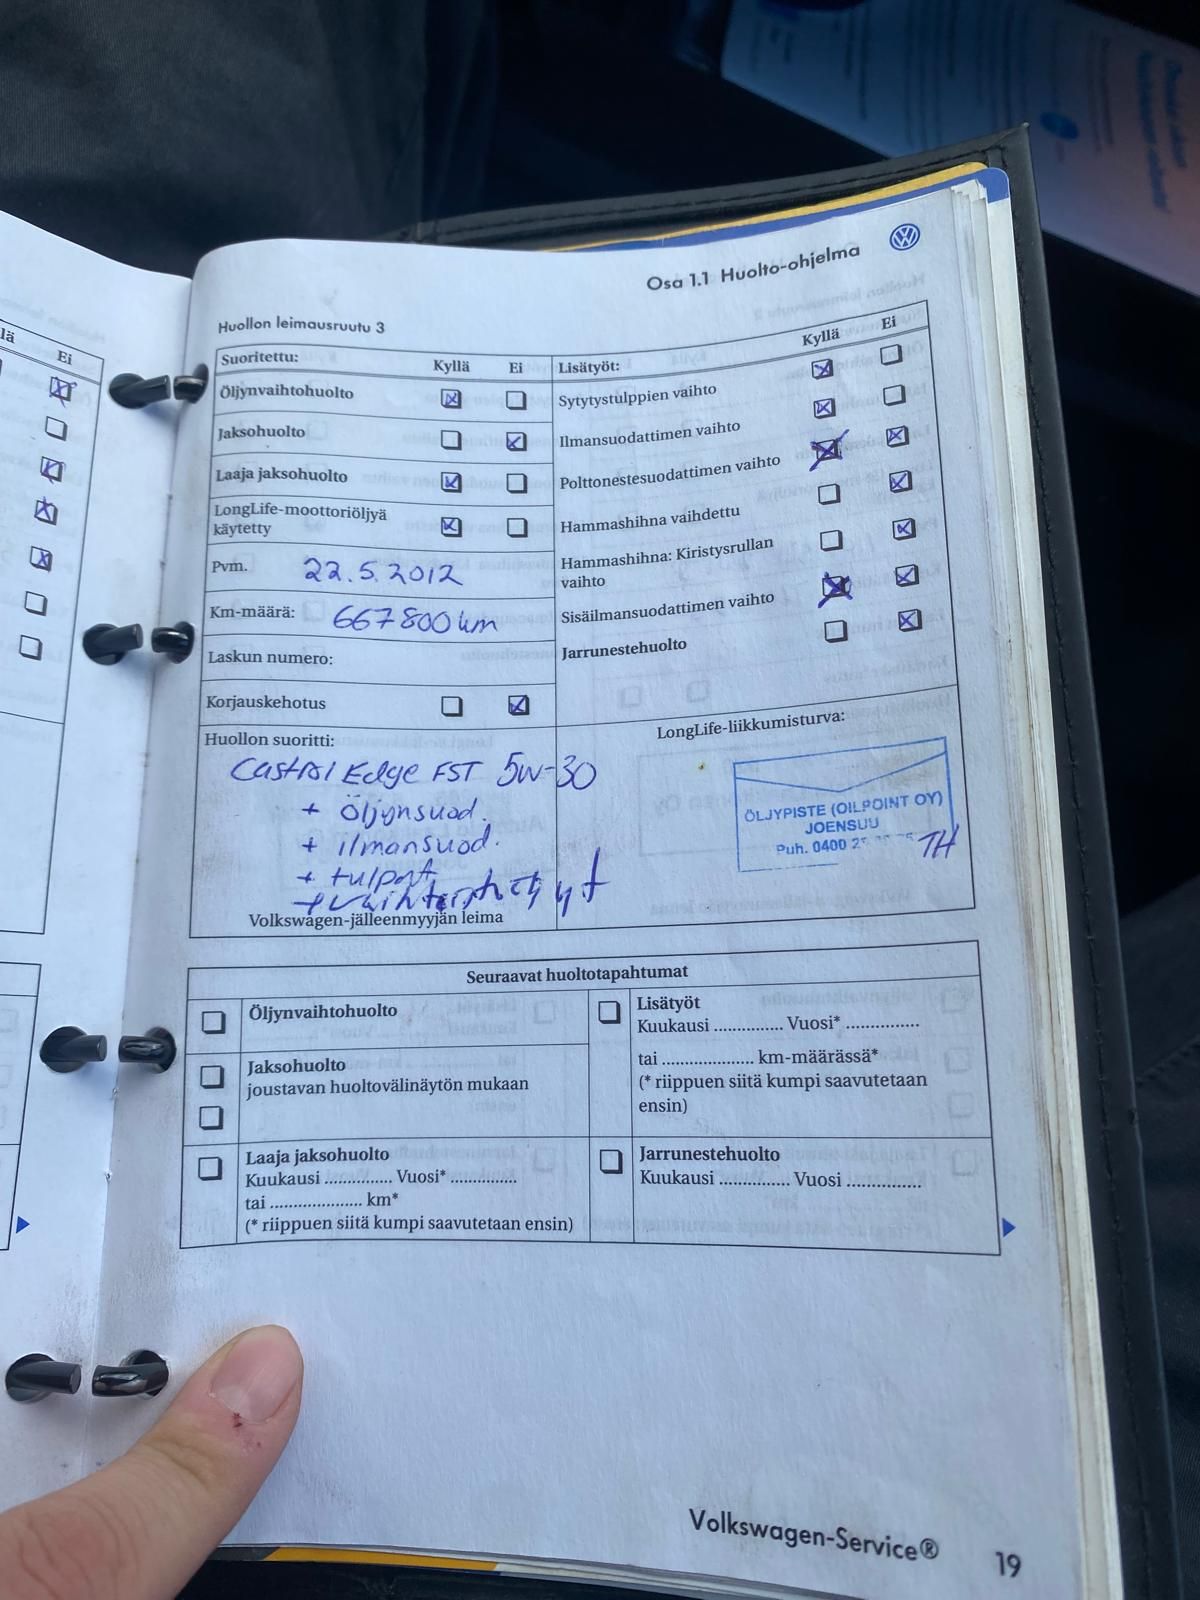 Osa 1.1 Huolto-ohjelma
Huollon leimausruutu 3
lä Ei
Suoritettu: Kyllä Ei
Öljynvaihtohuolto
Jaksohuolto
Laaja jaksohuolto
LongLife-moottoriöljyä
käytetty
Pvm. 22.5.2012
Km-määrä: 667800 km
Laskun numero:
Korjauskehotus
Lisätyöt: Kyllä Ei
Sytytystulppien vaihto
Ilmansuodattimen vaihto
Polttonestesuodattimen vaihto
Hammashihna vaihdettu
Hammashihna: Kiristysrullan
vaihto
Sisäilmansuodattimen vaihto
Jarrunestehuolto
Huollon suoritti:
Castrol Edge FST 5W-30
+ Öljynsuod.
+ ilmansuod.
+ tulpat
Volkswagen-jälleenmyyjän leima
LongLife-liikkumisturva:
ÖLJYPISTE (OILPOINT OY)
JOENSUU
Puh. 0400
TH
Seuraavat huoltotapahtumat
Öljynvaihtohuolto
Jaksohuolto
joustavan huoltovälinäytön mukaan
Laaja jaksohuolto
Kuukausi ............... Vuosi* ...............
tai .................... km*
(* riippuen siitä kumpi saavutetaan ensin)
Lisätyöt
Kuukausi ............... Vuosi* ...............
tai .................... km-määrässä*
(* riippuen siitä kumpi saavutetaan
ensin)
Jarrunestehuolto
Kuukausi ............... Vuosi ...............
Volkswagen-Service®
19